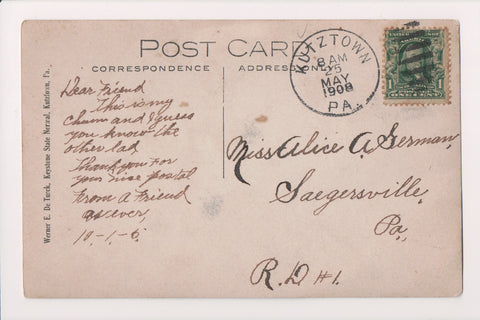 POST CARD
CORRESPONDENCE
ADDRESS
KUTZTOWN
8 AM
25
MAY
1908
PA.
1
Werner E. De Turck, Keystone State Normal, Kutztown, Pa.
Dear Friend
This is my
chum and I guess
you know the
other lad
Thank you for
your nice postal
From a Friend
as ever,
10-1-5
Miss Alice A. German,
Saegersville,
Pa,
R. D #1.